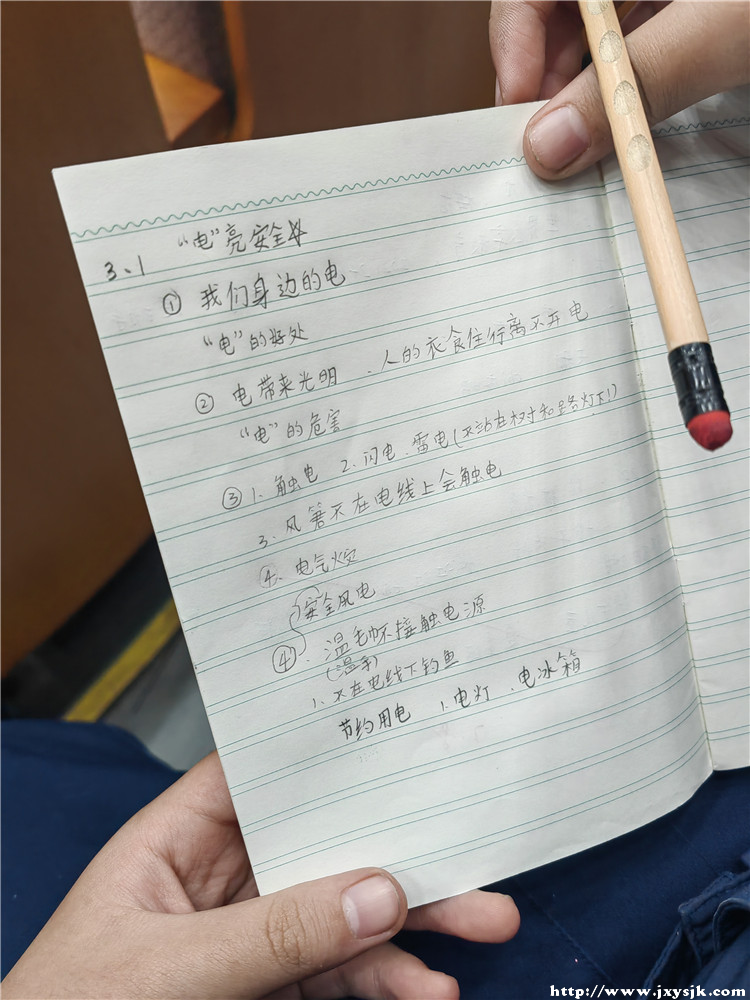 3、1 "电"亮安全
① 我们身边的电
"电"的好处
② 电带来光明、人的衣食住行离不开电
"电"的危害
③ 1、触电 2、闪电、雷电(不站在树和路灯下!)
3、风筝不在电线上会触电
④、电气火灾
安全用电
④、湿毛巾不接触电源
(湿手)
1、不在电线下钓鱼
节约用电 1、电灯、电冰箱
http://www.jxysjk.com